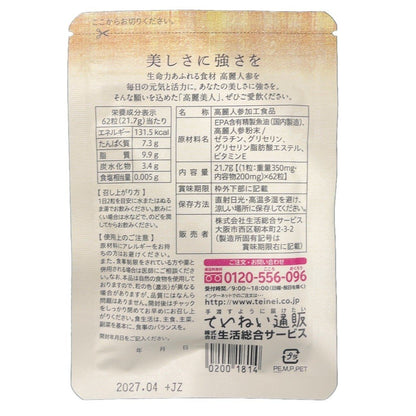 ここからお切りください。
美しさに強さを
生命力あふれる食材 高麗人参を
毎日の元気と活力に。あなたの美しさに強さを。
そんな願いを込めた「高麗美人」、ぜひご愛飲ください。
栄養成分表示
62粒(21.7g)当たり
エネルギー 131.5kcal
たんぱく質 7.3g
脂質 9.9g
炭水化物 3.4g
食塩相当量 0.005g
【召し上がり方】
1日2粒を目安に水またはぬるま湯でお飲みください。飲みにくい場合は水などで、のどを潤してからお飲みください。
【使用上のご注意】
原材料にアレルギーをお持ちの方はお召し上がりにならないでください。
名称 高麗人参加工食品
原材料名 EPA含有精製魚油(国内製造)、高麗人参粉末/ゼラチン、グリセリン、グリセリン脂肪酸エステル、ビタミンE
内容量 21.7g【(1粒:重量350mg・内容物200mg)×62粒】
賞味期限 枠外下部に記載
保存方法 直射日光・高温多湿を避け、涼しい場所に保存してください。
販売者 株式会社生活総合サービス
大阪市西区靭本町2-3-2
(製造所固有記号は賞味期限右に記載)
ご注文・お問い合わせ
0120-556-096
受付時間／9:00~18:00(日曜・祝日を除く)
インターネットでのご注文は
http://www.teinei.co.jp
手渡すように届けたい
ていねい通販
株式会社 生活総合サービス
開封年月日をご記入ください
年 月 日
2027.04 +JZ
0200 1814
プラ
PE,M,P,PET